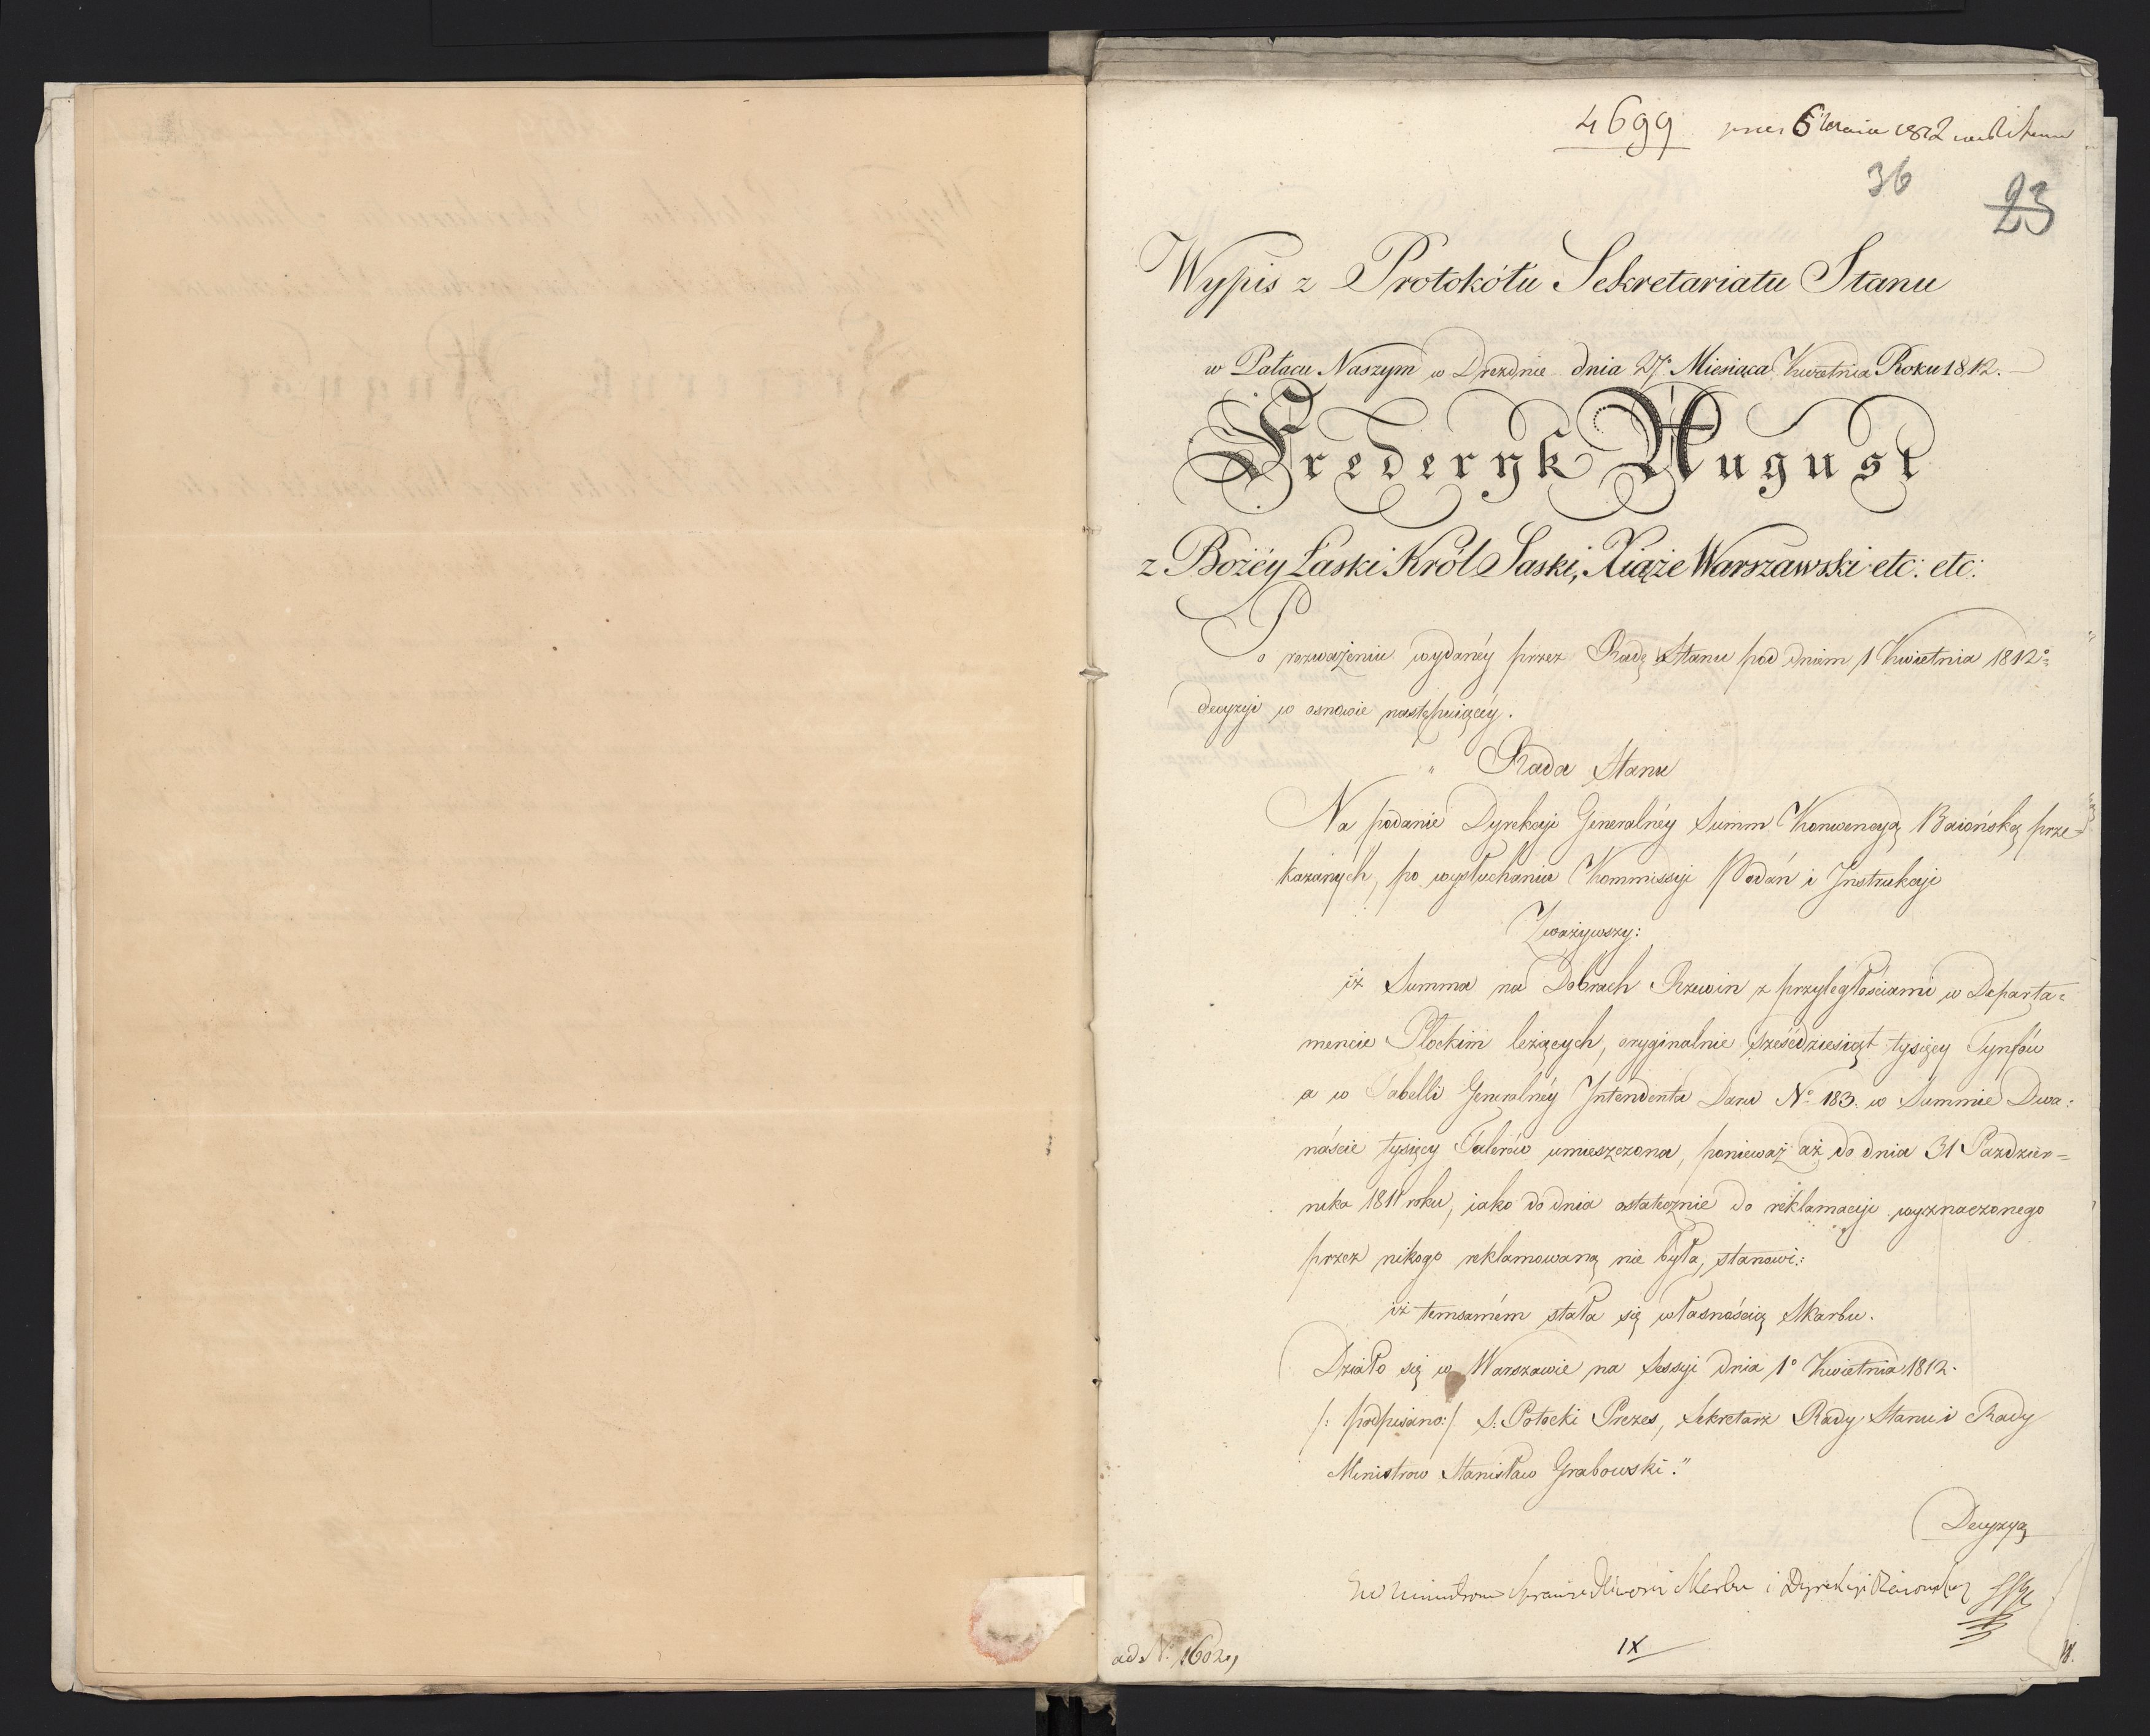 4699 6 Maia 1812
36
23
Wypis z Protokółu Sekretariatu Stanu
w Pałacu Naszym w Dreźnie dnia 27° Miesiąca Kwietnia Roku 1812.
Frederyk August
z Bożéy Łaski Król Saski, Xiąże Warszawski etc: etc:
Po rozważeniu wydanéy przez Radę Stanu pod dniem 1 Kwietnia 1812°
decyzyi w osnowie następuiącéy.
" Rada Stanu
Na podanie Dyrekcyi Generalnéy Summ Konwencyą Baiońską prze-
kazanych, po wysłuchaniu Kommissyi Podań i Instrukcyi
Zważywszy:
iż Summa na Dobrach Rzewin z przyległościami w Departa=
mencie Płockim leżących, oryginalnie sześćdziesiąt tysięcy Tynfów
a w Tabelli Generalnéy Intendenta Daru N° 183. w Summie Dwa=
náscie tysięcy Talerów umieszczona, ponieważ aż do dnia 31 Pazdzier=
nika 1811 roku, iako do dnia ostatecznie do reklamacyi wyznaczonego
przez nikogo reklamowaną nie była, stanowi:
iż temsamém stała się własnością Skarbu.
Działo się w Warszawie na Sessyi dnia 1° Kwietnia 1812.
/: podpisano:/ S: Potocki Prezes, Sekretarz Rady Stanu i Rady
Ministrow Stanisław Grabowski."
Decyzyą
Skarbu i Dyrekcyi Baionskiey
IX
ad N° 1602,